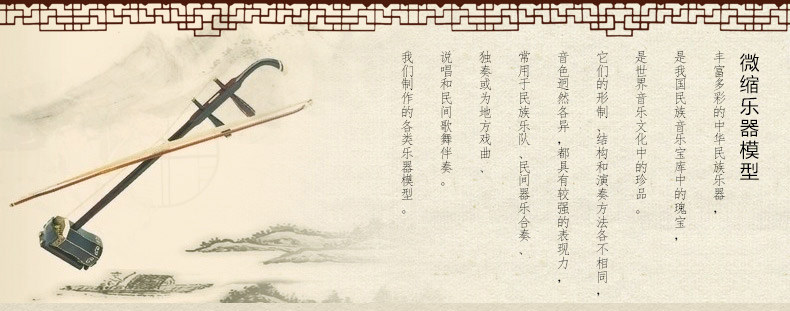 微缩乐器模型
丰富多彩的中华民族乐器，
是我国民族音乐宝库中的瑰宝，
是世界音乐文化中的珍品。
它们的形制、结构和演奏方法各不相同，
音色迥然各异，都具有较强的表现力，
常用于民族乐队、民间器乐合奏、
独奏或为地方戏曲、
说唱和民间歌舞伴奏。
我们制作的各类乐器模型。